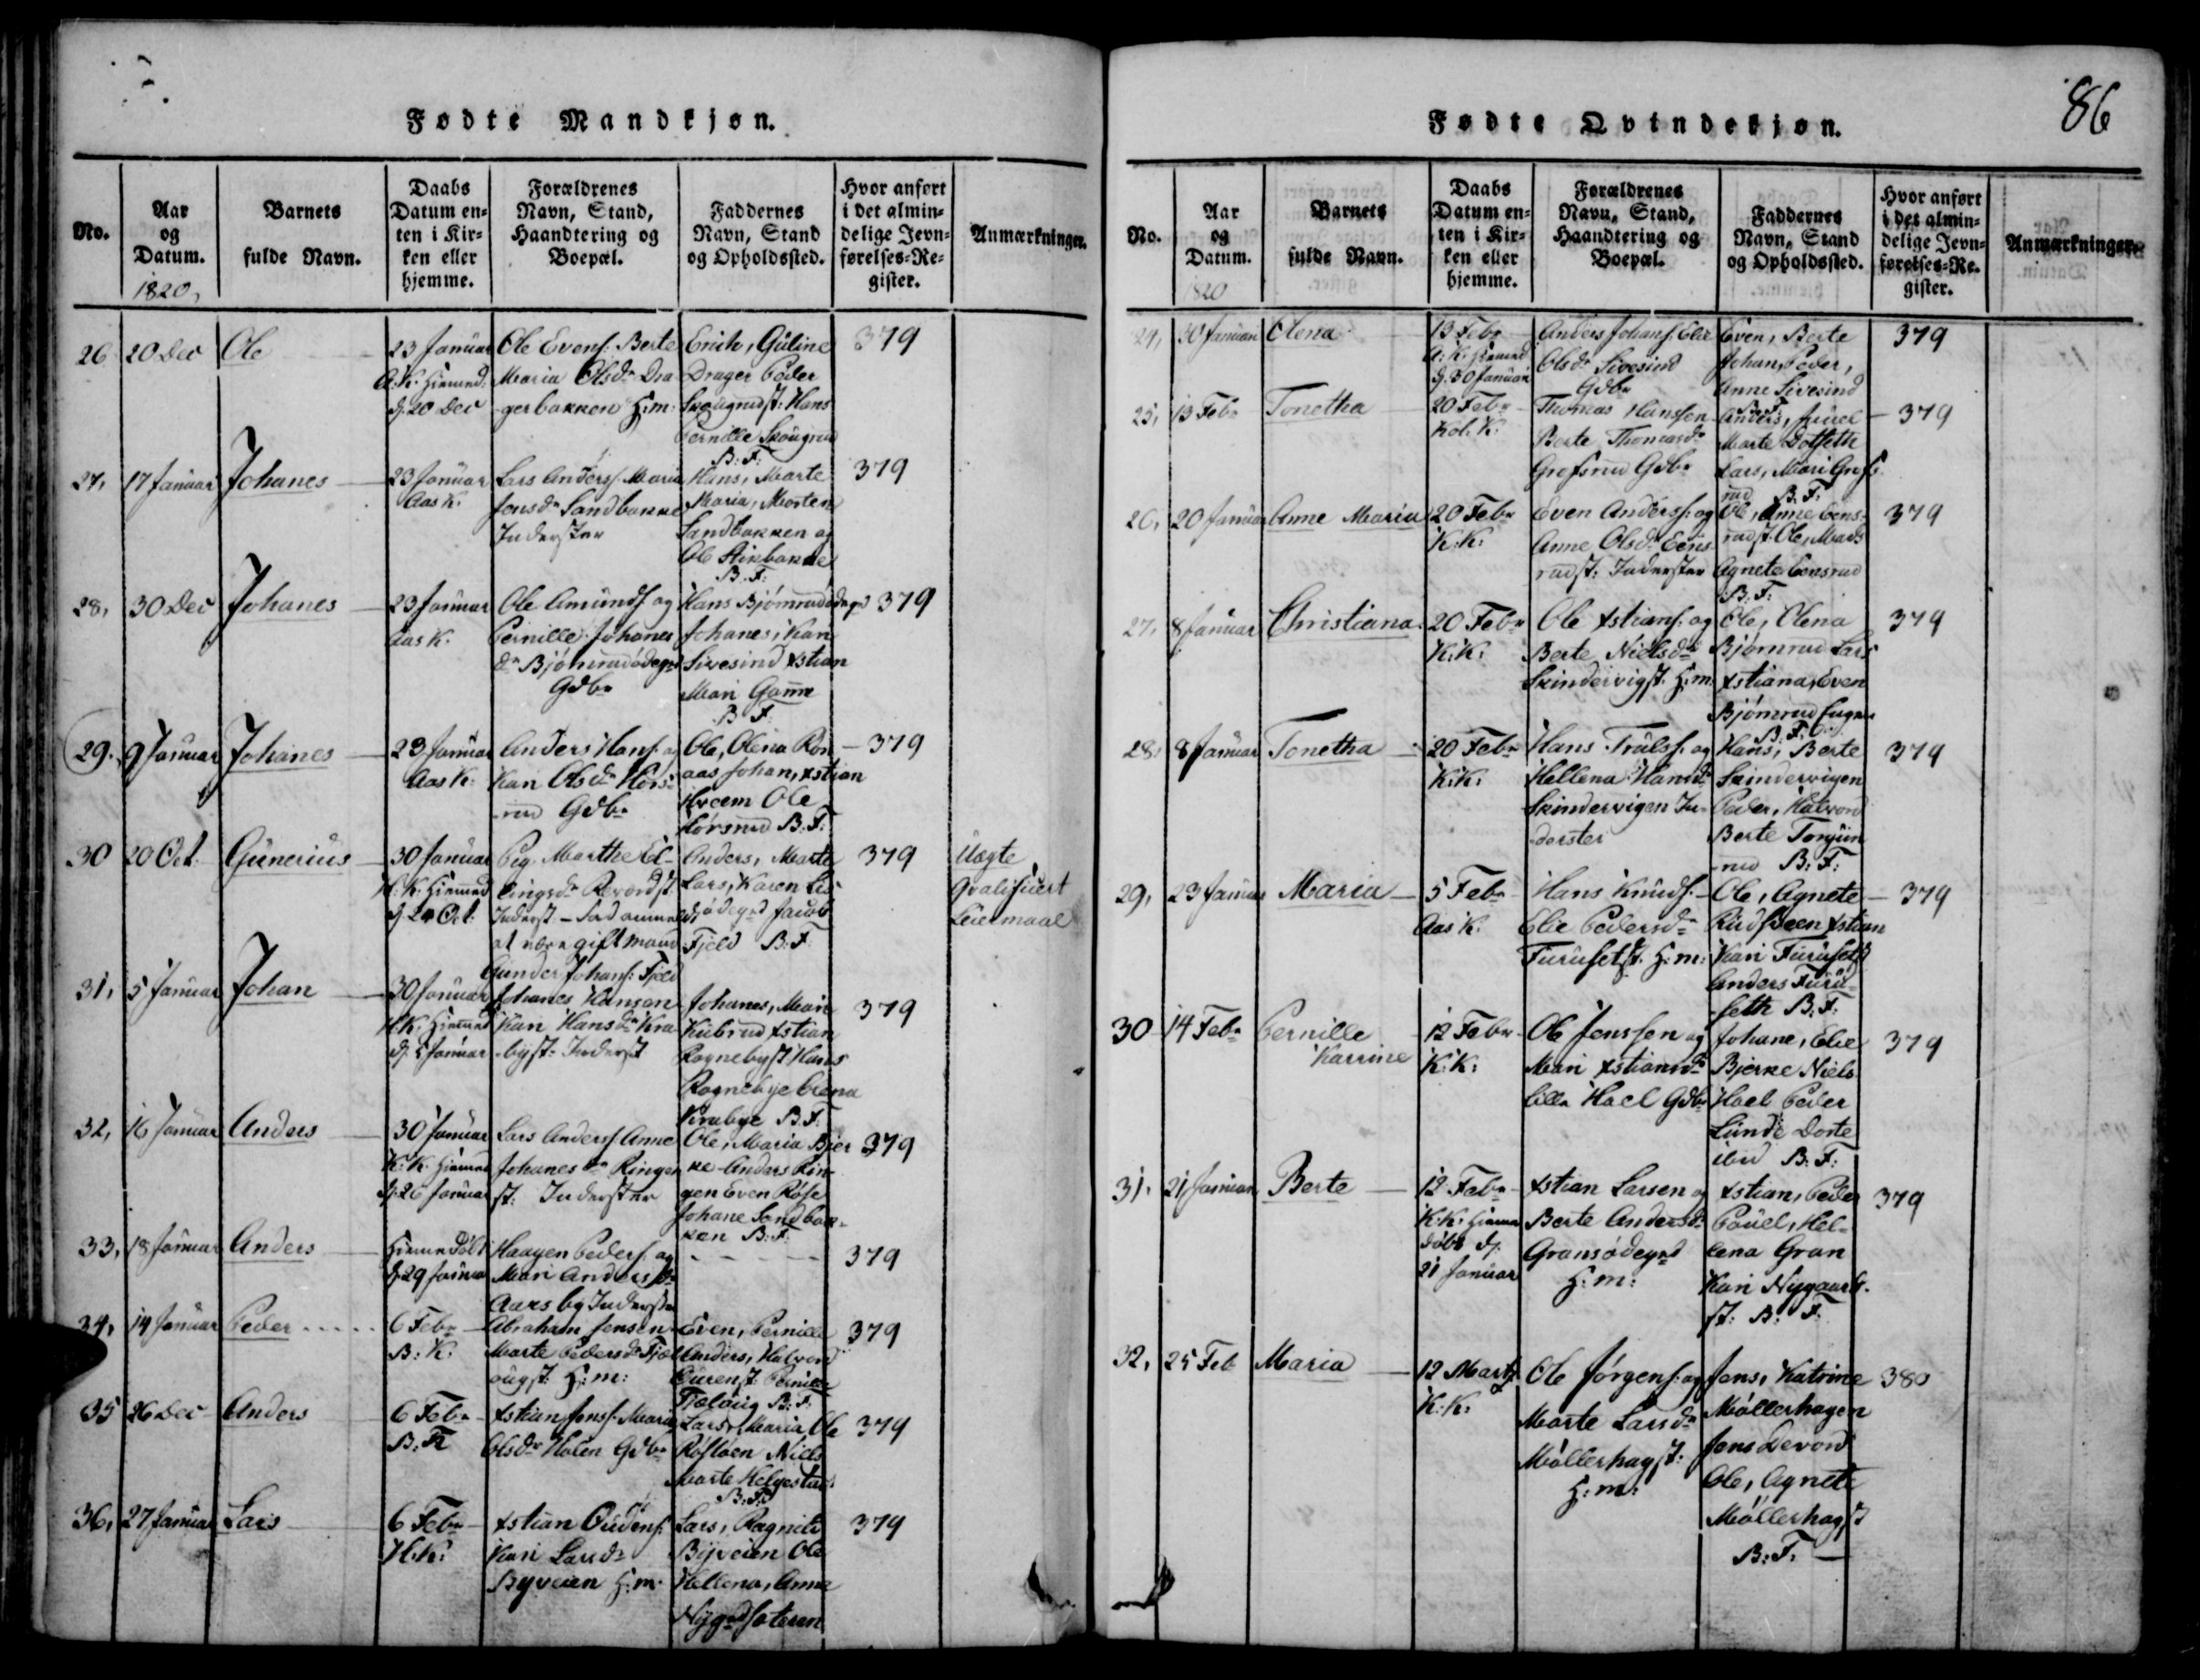 Fødte Mandkjøn.
No.
Aar
og
Datum.
1820,
Barnets
fulde Navn.
Daabs
Datum en-
ten i Kir-
ken eller
hjemme.
Forældrenes
Navn, Stand,
Haandtering og
Boepæl.
Faddernes
Navn, Stand
og Opholdssted.
Hvor anført
i det almin-
delige Jevn-
førelses-Re-
gister.
Anmærkninger.
26
20 Dec
Ole
23 Januar
A. K. Hiemmed:
d. 20 Dec
Ole Evens: Berte
Maria Olsdr Dra
gerbakken H:m:
Erich, Guline
Drager Peder
Skougrudst: Hans
Pernille Skougrud
B: F:
379
27,
17 Januar
Johanes
23 Januar
Aas K.
Lars Anders: Maria
Jensdr Sandbakke
Inderster
Hans, Marte
Maria, Morten
Sandbakken og
Ole Stikbakke
B. F:
379
28,
30 Dec
Johanes
23 Januar
Aas K.
Ole Amunds: og
Pernille Johanes
dr Bjørnerudødegd
Gdbr
Hans Bjørnrudødegd
Johanes, Kari
Sivesind Xstian
Mari Game
B F.
379
29.
9 Januar
Johanes
23 Januar
Aas K.
Anders Hans: og
Kari Olsdr Hørs-
rud Gdbr
Ole, Olena Røn
aas Johan, Xstian
Hveem Ole
Hørsrud B. F.
379
30
20 Oct.
Gunerius
30 Januar
H. K. Hiemmed
d. 24 Oct.
Pig. Marthe El-
lingsdr Revordst
Inderst - fad
at være gift mand
Gunder Johans: Fjeld
Anders, Marte
Lars, Karen
ødegrd Jacob
Fjeld B. F.
379
Uægte
Qvalificert
Leiermaal
31,
5 Januar
Johan
30 Januar
H. K. Hiemmed
d. 5 Januar
Johanes Hansen
Kari Hansdr Kra-
byst: Inderst
Johanes, Mari
Kubrud Xstian
Rognebyst Hans
Rognebye Olena
Krabye B. F.
379
32,
16 Januar
Anders
30 Januar
K. K. Hiemmed
d. 26 Januar
Lars Anders: Anne
Johanesdr Ringen
st. Inderster
Ole, Maria Bjer
ke Anders Rin-
gen Even Røse
Johane Sandbak-
ken B. F.
379
33,
18 Januar
Anders
Hiemedøbt
d. 29 Januar
Haagen Peders: og
Mari Andersdr
Aarsby Inderster
- - - - -
379
34,
14 Januar
Peder
6 Febr
B. K.
Abraham Jensen
Marte Pedersdr Fjæl
ougst: H:m:
Even, Pernille
Anders, Halvord
Ourenst. Pernille
Fjæloug B: F.
379
35
26 Dec
Anders
6 Febr
B. K
Xstian Jens: Maria
Olsdr Holen Gdbr
Lars, Maria, Ole
Røsløen Niels
Marte Helgestad
B: F:
379
36,
27 Januar
Lars
6 Febr
H. K:
Xstian Oudens:
Kari Larsdr
Byveien H:m.
Lars, Ragnite
Byveien Ole
Hellena, Anne
Nygrdsæteren
379
Fødte Qvindekjøn.
86
No.
Aar
og
Datum.
1820
Barnets
fulde Navn.
Daabs
Datum en-
ten i Kir-
ken eller
hjemme.
Forældrenes
Navn, Stand,
Haandtering og
Boepæl.
Faddernes
Navn, Stand
og Opholdssted.
Hvor anført
i det almin-
delige Jevn-
førelses-Re-
gister.
Anmærkninger.
24,
30 Januar
Olena
13 Febr
A: K. Hiemmed
d. 30 Januar
Anders Johans: Elie
Olsdr Sivesind
Gdbr
Even, Berte
Johan, Peder,
Anne Sivesind
B. F.
379
25,
13 Febr
Tonetha
20 Febr
Kol. K.
Thomas Hansen
Berte Thomasdr
Grefsrud Gdbr
Anders, Juuel
Marte Totseth
Lars, Mari Grefs-
rud B. F.
379
26,
20 Januar
Anne Maria
20 Febr
K. K:
Even Anders: og
Anne Olsdr Eens
rudst: Inderster
Ole, Anne Eens-
rudst. Ole, Mads
Agnete Eensrud
B: F:
379
27,
8 Januar
Christiana
20 Febr
K: K:
Ole Xstians: og
Berte Nielsdr
Skindervigst. H:m:
Ole, Olena
Bjørnrud Lars
Xstiana, Even
Bjørnrud
B. F.
379
28,
8 Januar
Tonetha
20 Febr
K: K:
Hans Truls: og
Hellena Hansdr
Skindervigen In-
derster
Hans, Berte
Skindervigen
Peder, Halvord
Berte Tonjum
rud B. F.
379
29,
23 Januar
Maria
5 Febr
Aas K.
Hans Knuds:
Elie Pedersdr
Furusetst. H:m:
Ole, Agnete
Rudsveen Xstian
Kari Furuseth
Anders Furu-
seth B. F.
379
30
14 Febr
Pernille
Karrine
12 Febr
K: K:
Ole Jenssen og
Mari Xstiansdr
Lille Hoel Gdbr
Johane, Elie
Bjerke Niels
Hoel Peder
Lunde Dorte
ibid B. F:
379
31,
21 Januar
Berte
12 Febr
K. K. Hiemme
døbt d.
21 Januar
Xstian Larsen og
Berte Andersdr
Gransødegrd
H: m:
Xstian, Peder
Pouel, Hel-
lena Gran
Kari Nygaard-
st: B: F.
379
32,
25 Feb
Maria
12 Marts
K: K:
Ole Jørgens: og
Marte Larsdr
Møllerhagst:
H: m:
Jens, Katrine
Møllerhagen
Jens Devord
Ole, Agnete
Møllerhagst
B: F:
380